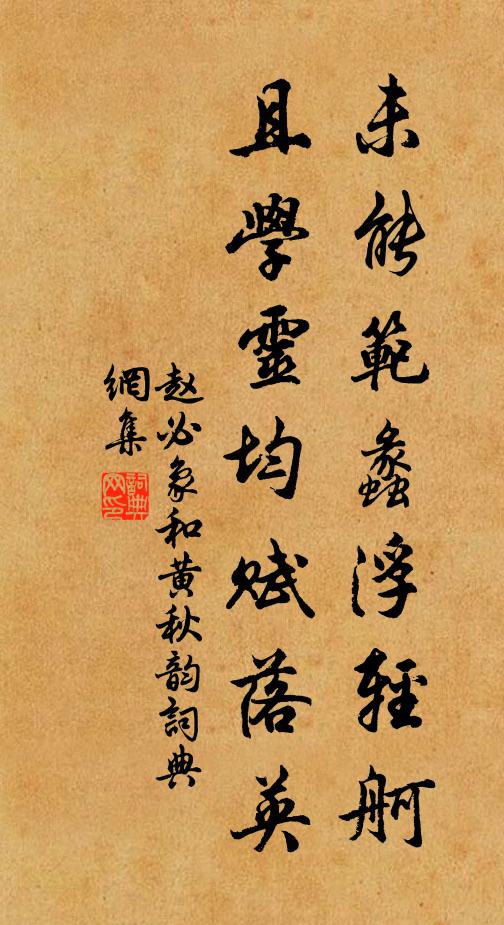 未能範蠡浮輕舸
且學靈均赋落英
赵必象和黄秋韵詞典
網集
詞典
网印